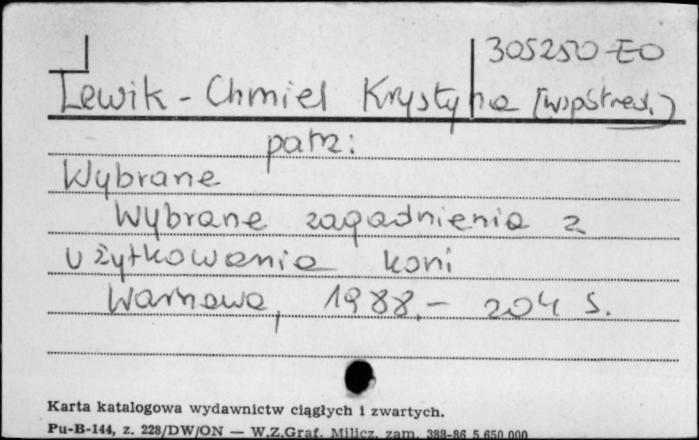 305250-EO
Lewik-Chmiel Krystyna (współred.)
patrz:
Wybrane
Wybrane zagadnienia z
użytkowania koni
Warszawa, 1988.- 204 s.
Karta katalogowa wydawnictw ciągłych i zwartych.
Pu-B-144, z. 228/DW/ON — W.Z.Graf. Milicz, zam. 388-86 5.650.000